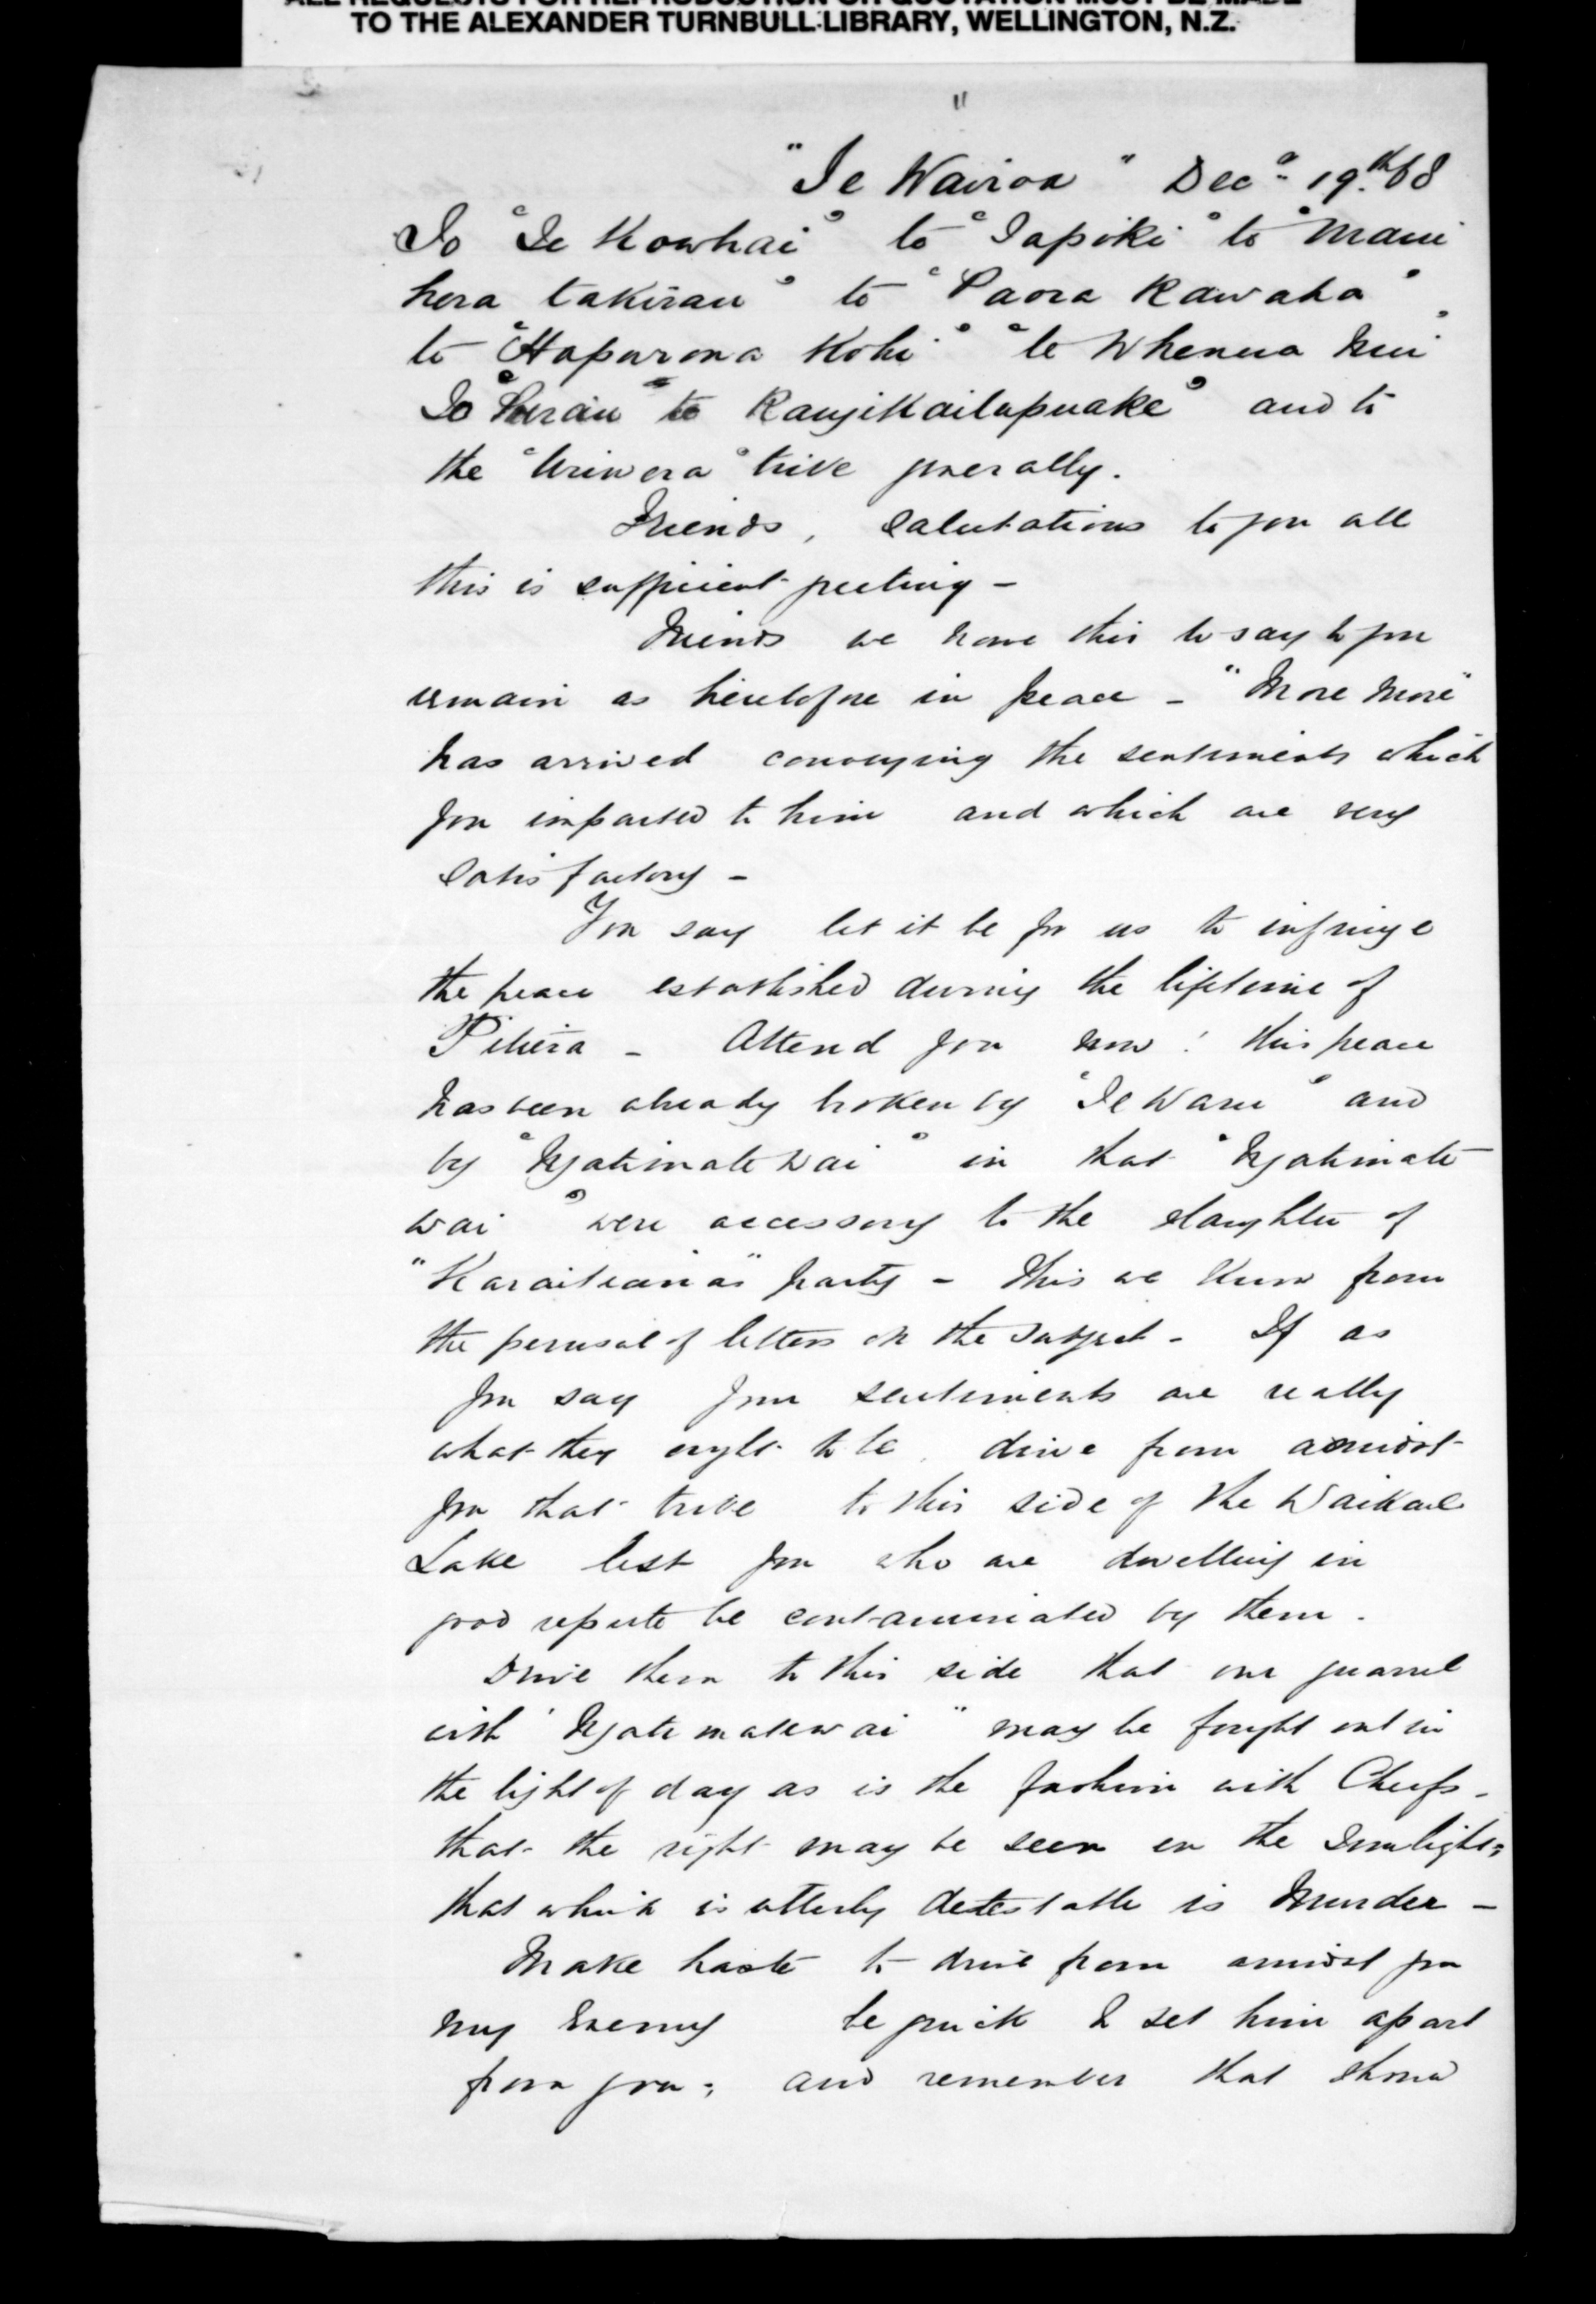 ALL REQUESTS FOR REPRODUCTION OR QUOTATION MUST BE MADE
TO THE ALEXANDER TURNBULL LIBRARY, WELLINGTON, N.Z.
"Te Wairoa" Dec. 19th 68
To "Te Kowhai" to "Tapiki" to "Maui
hera takirau" to "Paora Rawaha"
to "Hapurona Kohi" "te Whenua Nui"
To "Purau" to Rangikaitupuake" and to
the "Uriwera" tribe generally.
Friends, Salutations to you all
this is sufficient greeting -
Friends we have this to say to you
remain as heretofore in peace - "More More"
has arrived conveying the sentiments which
you imparted to him and which are very
satisfactory -
You say let it be for us to infringe
the peace established during the lifetime of
Pihera - Attend you now! this peace
has been already broken by "Te Waru" and
by "Ngatimatewai" in that "Ngatimate
wai" were accessory to the slaughter of
"Karaitiana's" party - This we know from
the perusal of letters on the subject - If as
you say your sentiments are really
what they ought to be, drive from amidst
you that tribe to this side of the Waikare
Lake lest you who are dwelling in
good repute be contaminated by them.
Drive them to this side that our quarrel
with "Ngatimatewai" may be fought out in
the light of day as is the fashion with Chiefs -
that the right may be seen in the sunlight;
that which is utterly detestable is Murder -
Make haste to drive from amidst you
my Enemy be quick & set him apart
from you; and remember that should